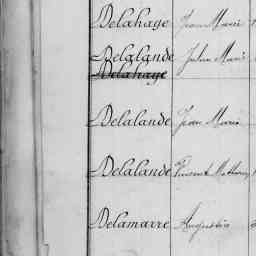 Delahaye Jean Marie
Delalande Julien Marie
Delahaye
Delalande Jean Marie
Delalande Vincent Mathurin
Delamarre Augustin